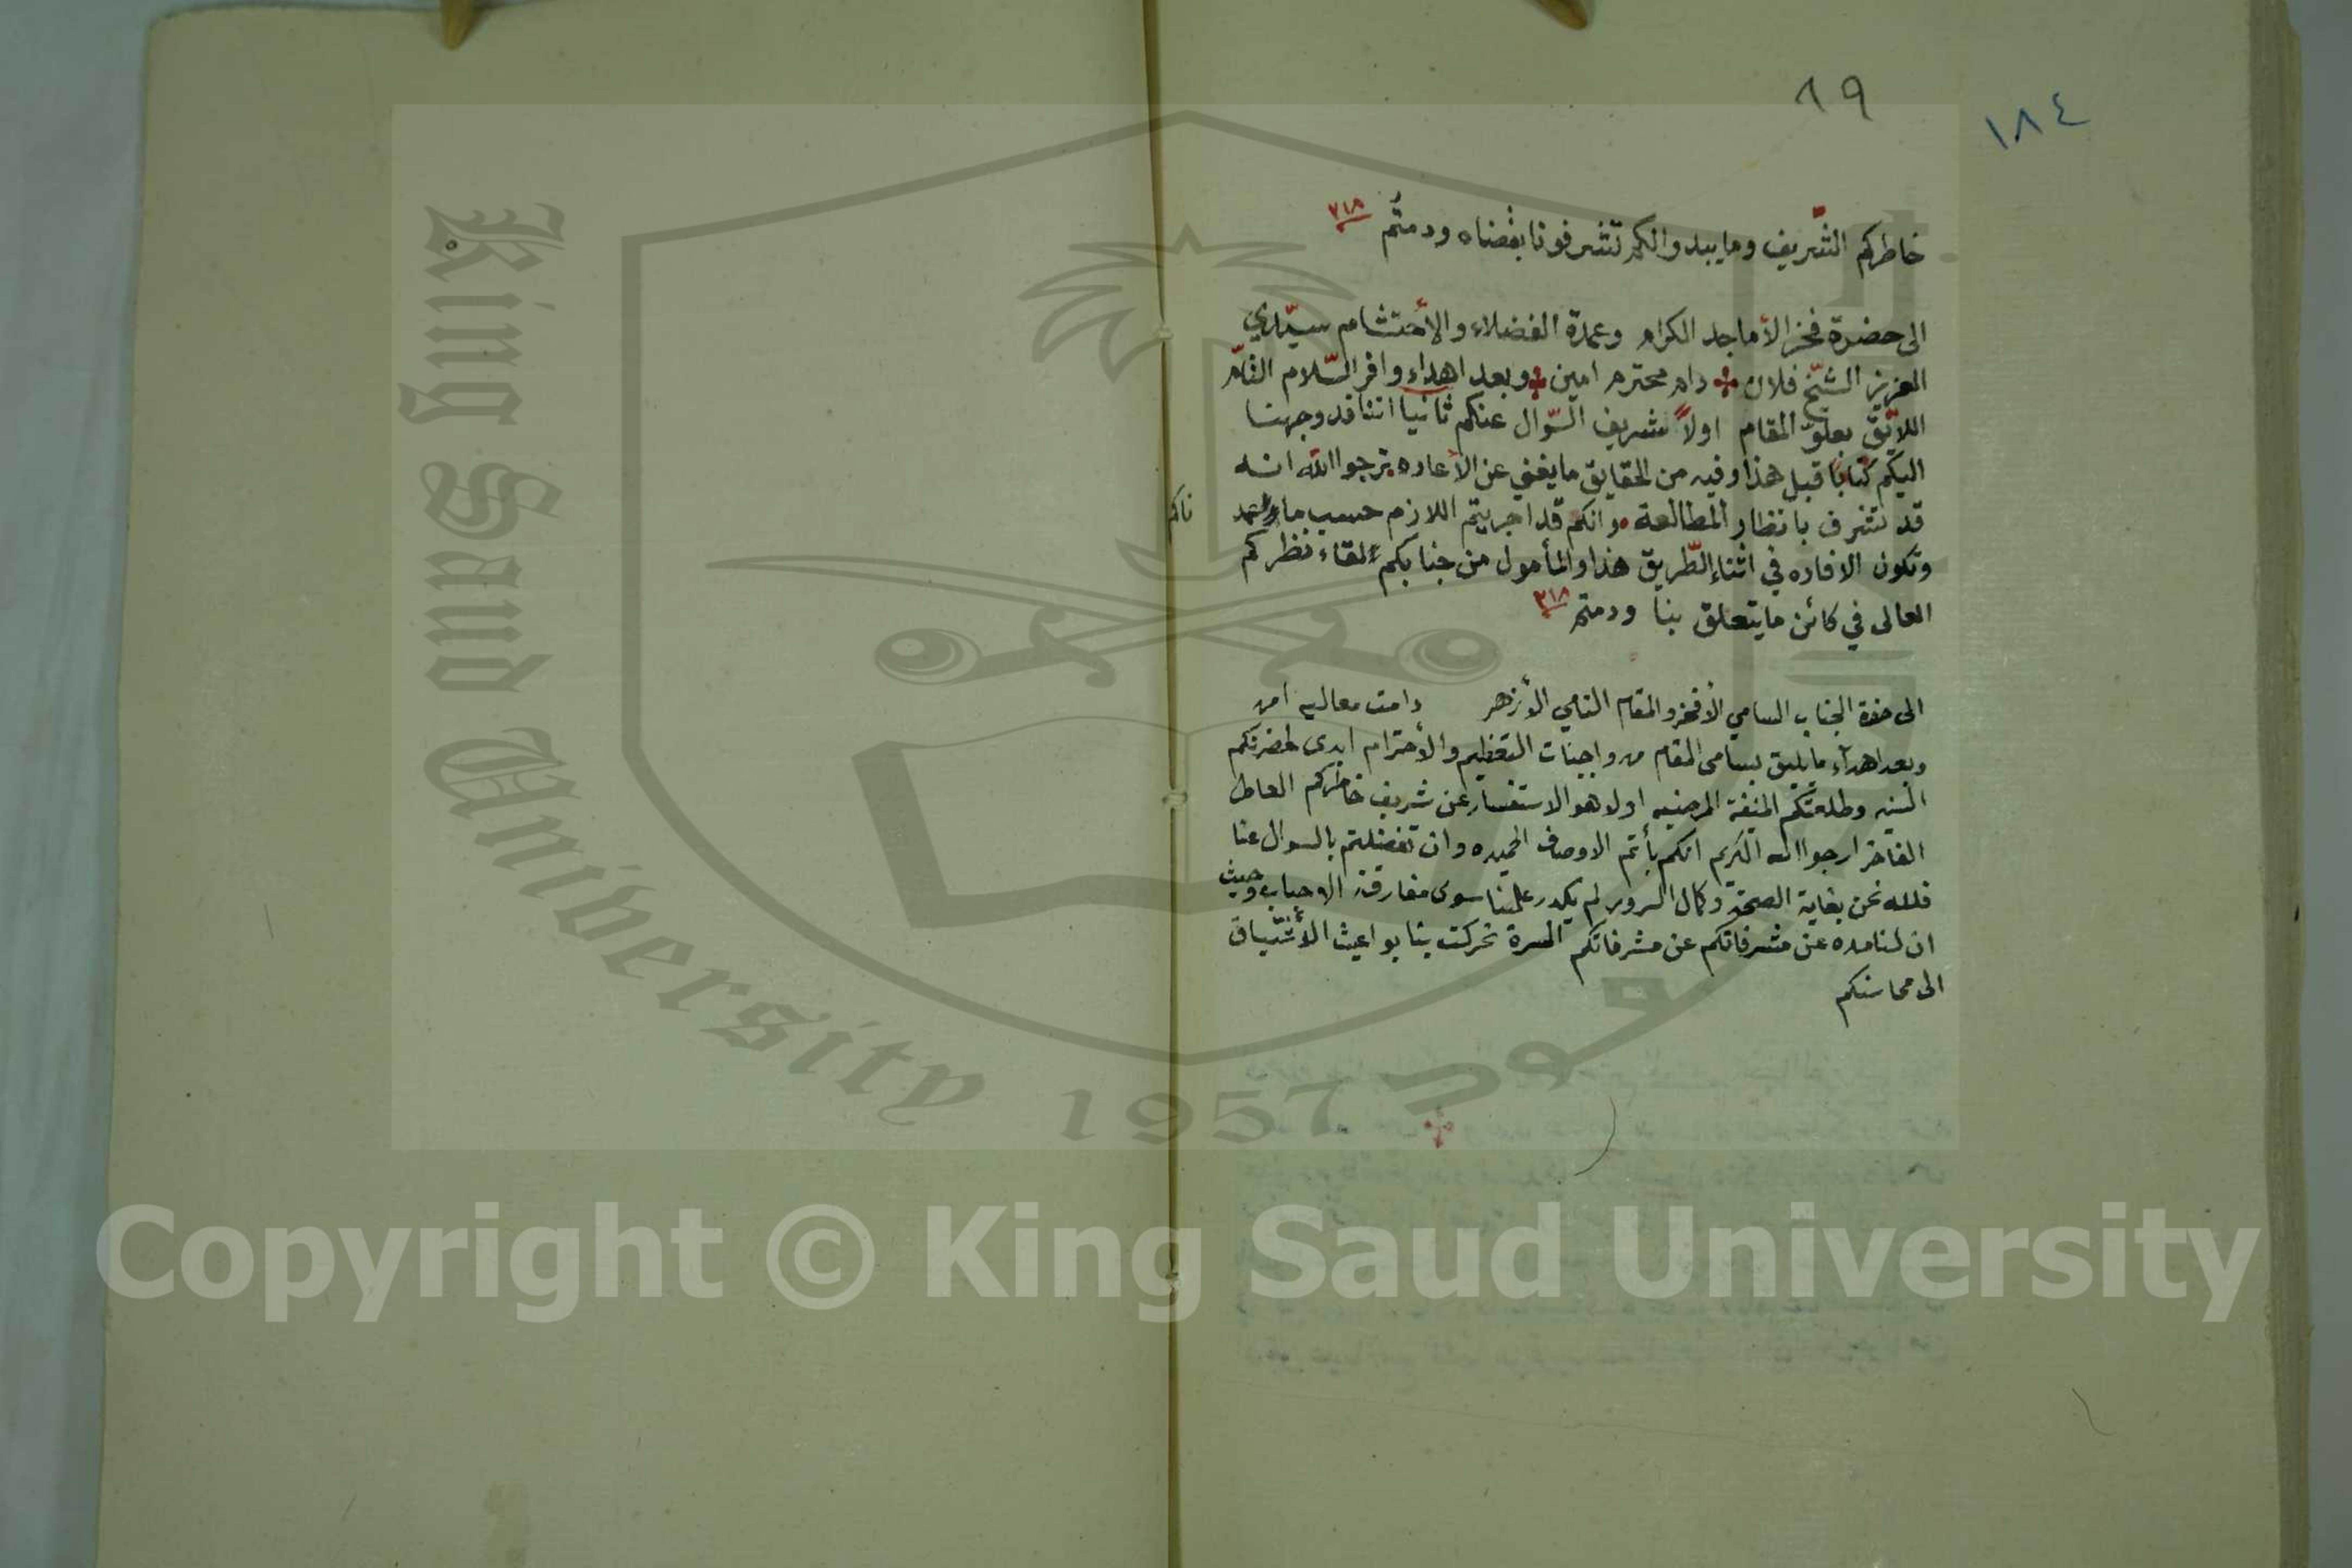 ١٩
١٨٤
خاطركم الشّريف وما يبدوا لكم تشرفونا بقضاه ودمتم
الى حضرة فخر الأماجد الكرام وعمدة الفضلاء والأحتشام سيّدي
العزيز الشيّخ فلان دام محترم امين وبعد اهداء وافر السّلام التّام
اللايّق بعلوّ المقام اولاً لشريف السّوال عنكم ثانيا اننا قد وجهنا
اليكم كتابا قبل هذا وفيه من الحقايق ما يغني عن الأعاده نرجوا الله انه
قد تشرف بانظار المطالعة وانكم قد اجريتم اللازم حسب ما
ناكم
وتكون الافاده في اثناء الطّريق هذا والمأمول من جنابكم القاء نظركم
العالى في كائن ما يتعلق بنا ودمتم
الى حضرة الجناب السامي الأفخر والمقام النامي الأزهر دامت معاليه امين
وبعد اهدآء ما يليق بسامى المقام من واجبات التعظيم والأحترام ابدى لحضرتكم
السنيه وطلعتكم المنيفة المرضيه اولا هو الاستفسار عن شريف خاطركم العاطر
الفاخر ارجوا الله الكريم انكم بأتم الاوصاف الحميده وان تفضلتم بالسوال عنا
فلله نحن بغاية الصحة وكمال السرور لم يكدر علينا سوى مفارقة الاحباب وحيث
ان لنا مده عن مشرفاتكم عن مشرفاتكم المسرة تحركت بنا بواعيث الأشتياق
الى محاسنكم
King Saud University
1957
Copyright © King Saud University